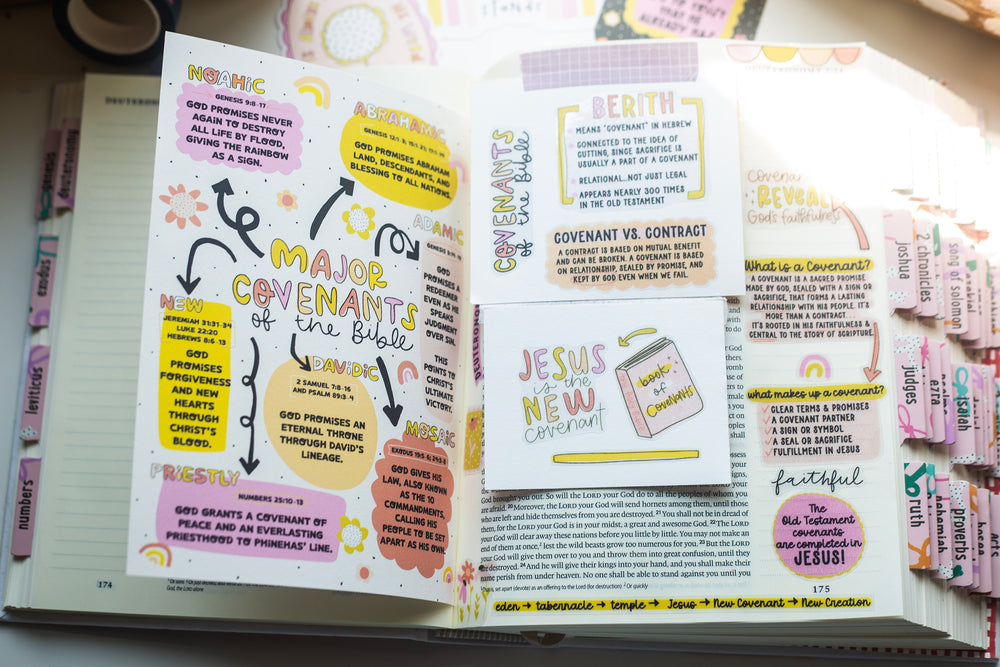 stands
DEUTERONOMY
NOAHIC
GENESIS 9:8-17
GOD PROMISES NEVER
AGAIN TO DESTROY
ALL LIFE BY FLOOD,
GIVING THE RAINBOW
AS A SIGN.
ABRAHAMIC
GOD PROMISES ABRAHAM
LAND, DESCENDANTS, AND
BLESSING TO ALL NATIONS.
ADAMIC
GOD
PROMISES A
REDEEMER
EVEN AS HE
SPEAKS
JUDGMENT
OVER SIN.
THIS
POINTS TO
CHRIST'S
ULTIMATE
VICTORY.
MAJOR
COVENANTS
of the Bible
NEW
JEREMIAH 31:31-34
LUKE 22:20
HEBREWS 8:6-13
GOD
PROMISES
FORGIVENESS
AND NEW
HEARTS
THROUGH
CHRIST'S
BLOOD.
DAVIDIC
2 SAMUEL 7:8-16
AND PSALM 89:3-4
GOD PROMISES AN
ETERNAL THRONE
THROUGH DAVID'S
LINEAGE.
MOSAIC
GOD GIVES HIS
LAW, ALSO KNOWN
AS THE 10
COMMANDMENTS,
CALLING HIS
PEOPLE TO BE SET
APART AS HIS OWN.
PRIESTLY
NUMBERS 25:10-13
GOD GRANTS A COVENANT OF
PEACE AND AN EVERLASTING
PRIESTHOOD TO PHINEHAS' LINE.
174
God, the LORD alone
COVENANTS
of the Bible
BERITH
MEANS "COVENANT" IN HEBREW
CONNECTED TO THE IDEA OF
CUTTING, SINCE SACRIFICE IS
USUALLY A PART OF A COVENANT
RELATIONAL...NOT JUST LEGAL
APPEARS NEARLY 300 TIMES
IN THE OLD TESTAMENT
COVENANT VS. CONTRACT
A CONTRACT IS BASED ON MUTUAL BENEFIT
AND CAN BE BROKEN. A COVENANT IS BASED
ON RELATIONSHIP, SEALED BY PROMISE, AND
KEPT BY GOD EVEN WHEN WE FAIL.
JESUS
is the
NEW
covenant
book
of
Covenants
God brought you out. So will the LORD your God do to all the peoples of whom you
are afraid. 20 Moreover, the LORD your God will send hornets among them, until those
who are left and hide themselves from you are destroyed. 21 You shall not be in dread of
them, for the LORD your God is in your midst, a great and awesome God. 22 The LORD
your God will clear away these nations before you little by little. You may not make an
end of them at once, lest the wild beasts grow too numerous for you. 23 But the LORD
your God will give them over to you and throw them into great confusion, until they
are destroyed. 24 And he will give their kings into your hand, and you shall make their
name perish from under heaven. No one shall be able to stand against you until you
set apart (devote) as an offering to the Lord (for destruction) 2 Or quickly
eden → tabernacle → temple → Jesus → New Covenant → New Creation
Covenants
REVEAL
God's faithfulness
What is a Covenant?
A COVENANT IS A SACRED PROMISE
MADE BY GOD, SEALED WITH A SIGN OR
SACRIFICE, THAT FORMS A LASTING
RELATIONSHIP WITH HIS PEOPLE. IT'S
MORE THAN A CONTRACT...
IT'S ROOTED IN HIS FAITHFULNESS &
CENTRAL TO THE STORY OF SCRIPTURE.
what makes up a covenant?
CLEAR TERMS & PROMISES
A COVENANT PARTNER
A SIGN OR SYMBOL
A SEAL OR SACRIFICE
FULFILLMENT IN JESUS
faithful
The
Old Testament
covenants
are completed in
JESUS!
175
genesis
deuteronomy
exodus
leviticus
numbers
joshua
2 chronicles
song of solomon
judges
ezra
isaiah
ruth
nehemiah
proverbs
hosea